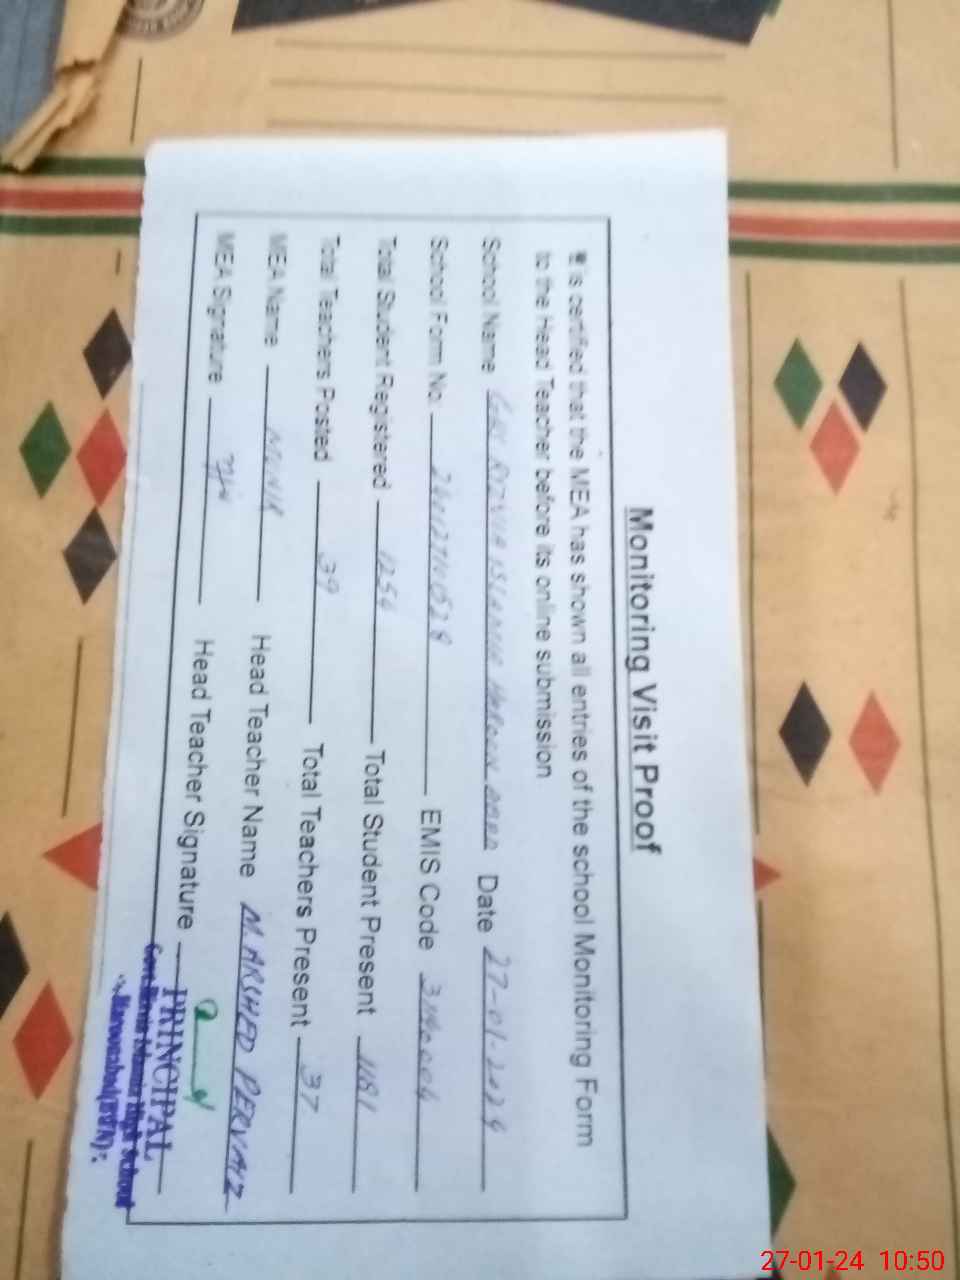 Monitoring Visit Proof
It is certified that the MEA has shown all entries of the school Monitoring Form
to the Head Teacher before its online submission
School Name GHS RIZVIA ISLAMIA HAROON ABAD Date 27-01-2024
School Form No. EMIS Code
Total Student Registered 1254 Total Student Present 1181
Total Teachers Posted 39 Total Teachers Present 37
MEA Name MUNIR Head Teacher Name M. ARSHED PERVAIZ
MEA Signature Head Teacher Signature
PRINCIPAL
Govt. Rizvia Islamia High School
Haroonabad
27-01-24 10:50